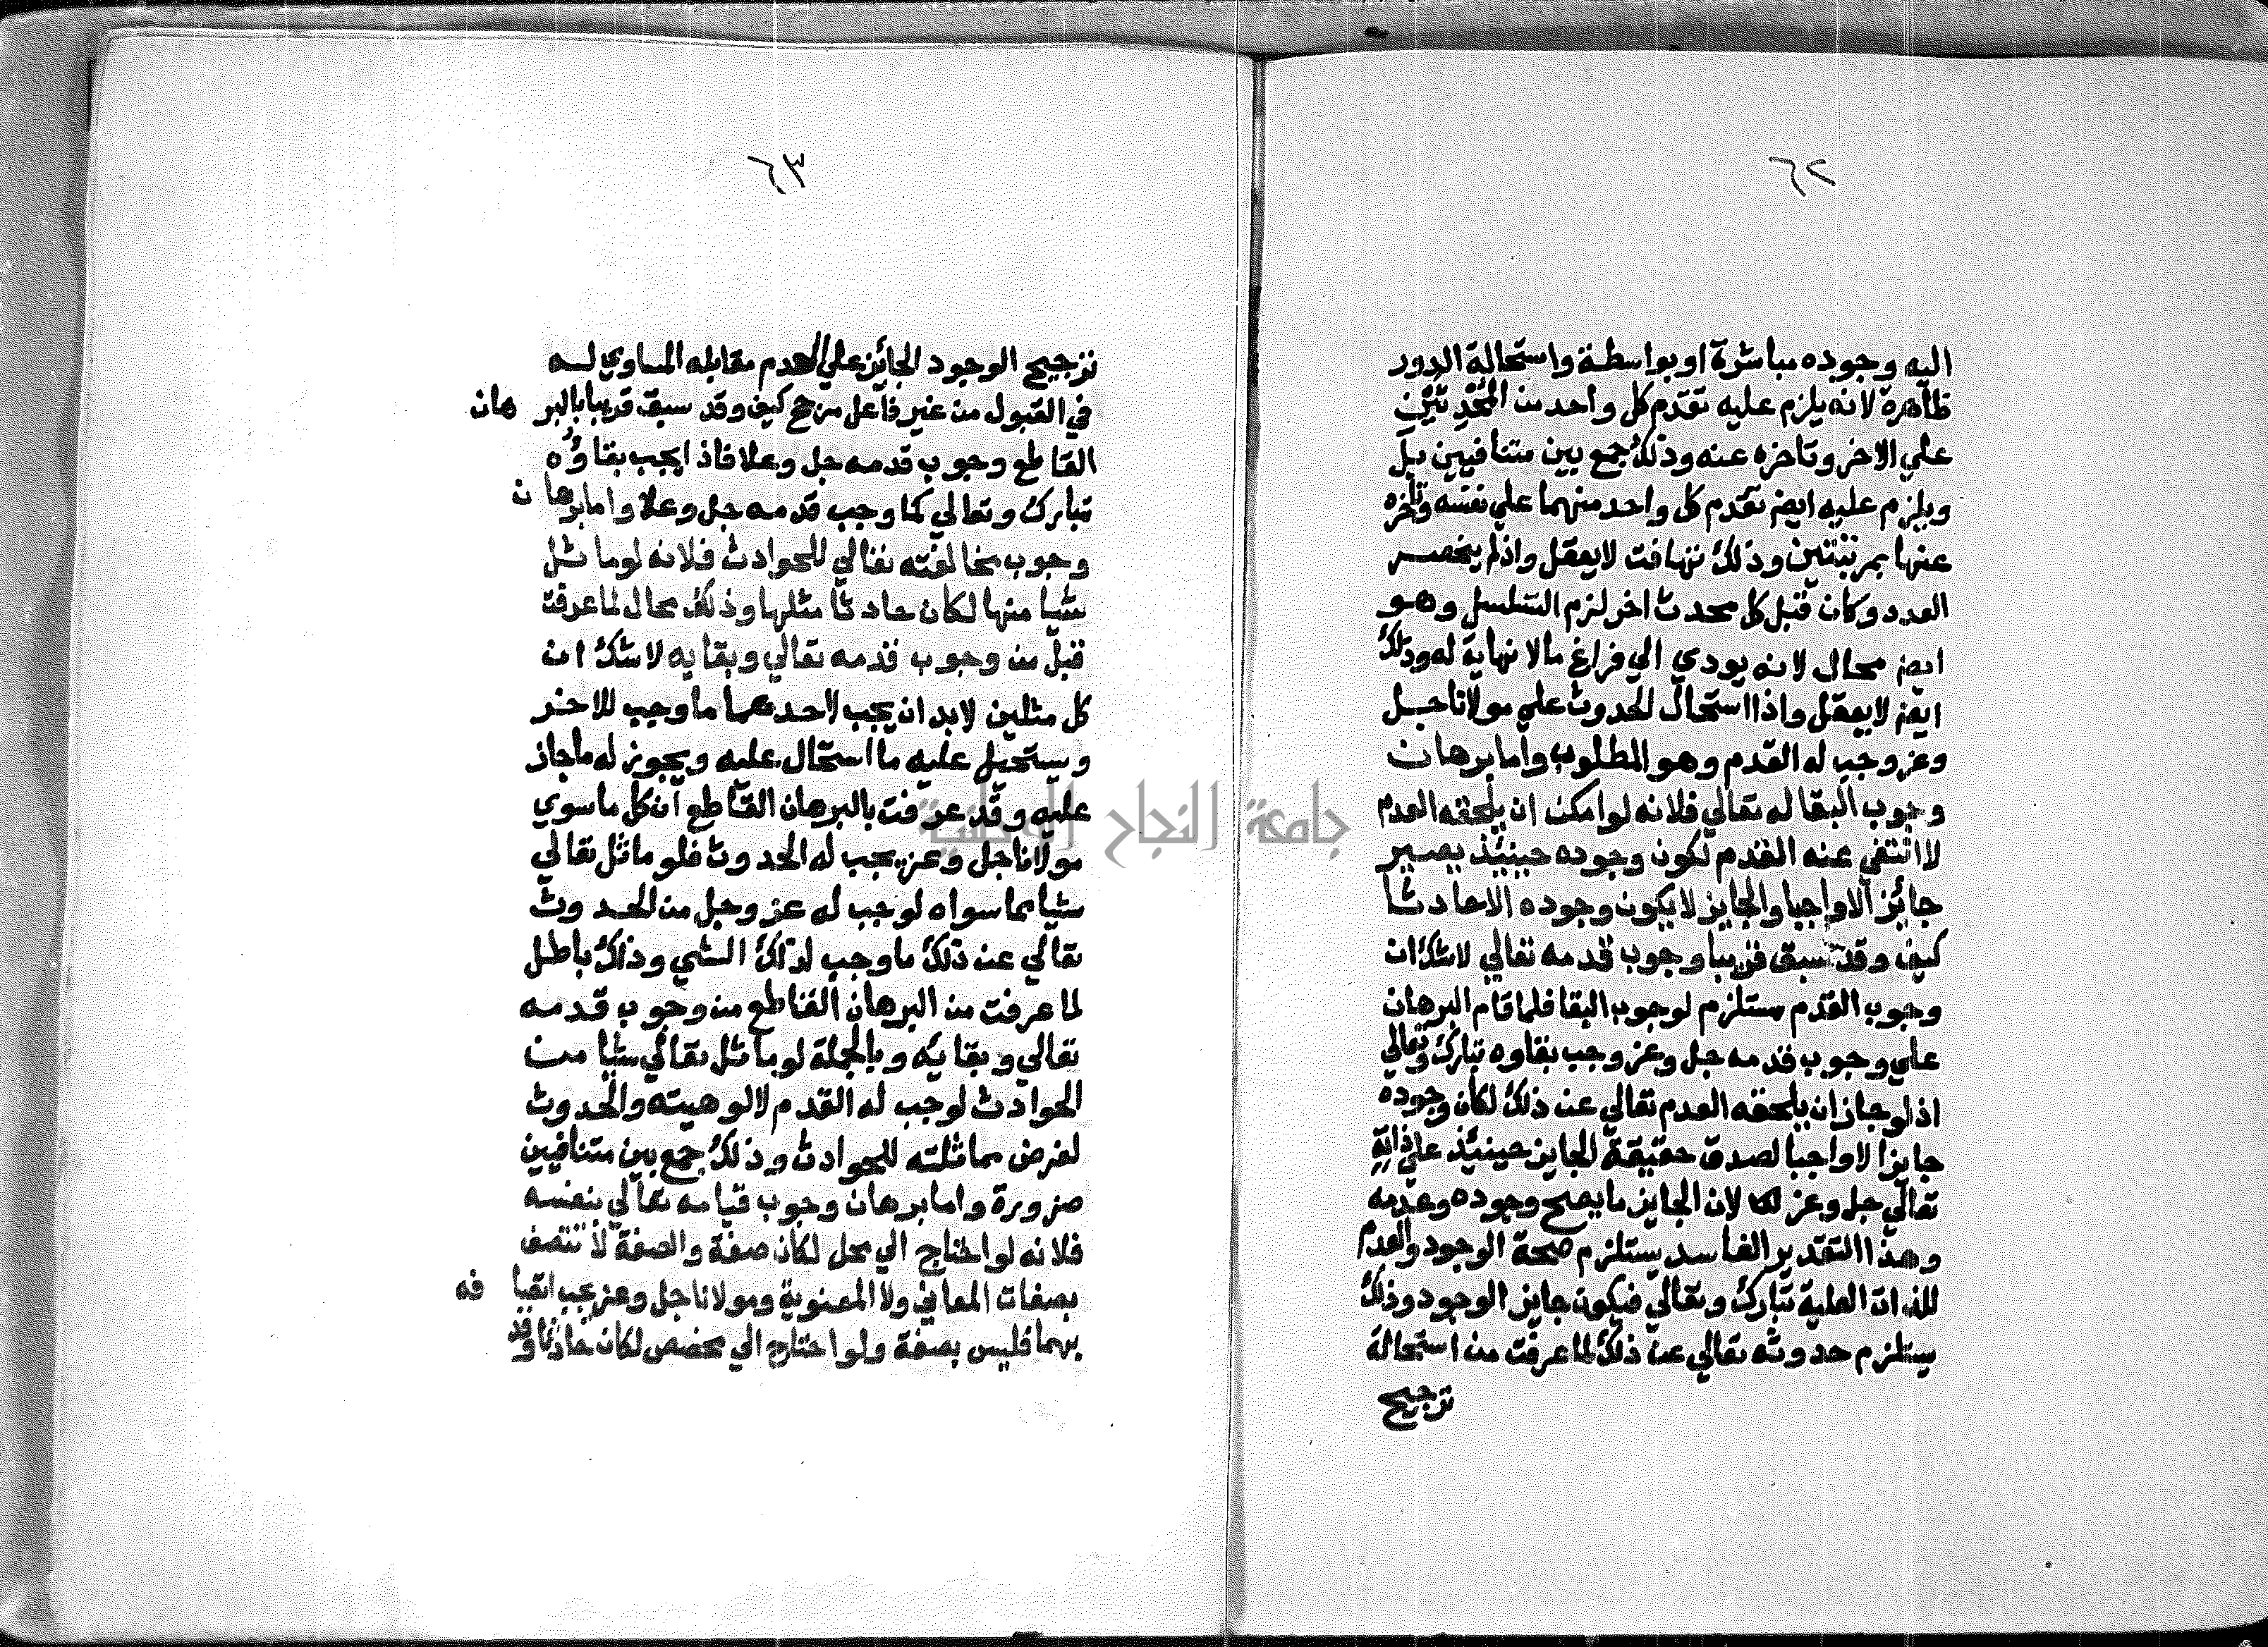 ٦٢
اليه وجوده مباشرة او بواسطة واستحالة الدور
ظاهرة لانه يلزم عليه تقدم كل واحد من المحدثين
علي الاخر وتاخره عنه وذلك جمع بين متنافيين بل
ويلزم عليه ايض تقدم كل واحد منهما علي نفسه وتاخره
عنها بمرتبتين وذلك تهافت لا يعقل واذا لم ينحصر
العدد وكان قبل كل محدث اخر لزم التسلسل وهو
ايض محال لانه يودي الي فراغ مالا نهاية له وذلك
ايض لا يعقل واذا استحال الحدوث علي مولانا جل
وعز وجب له القدم وهو المطلوب واما برهان
وجوب البقا له تعالي فلانه لوامكن ان يلحقه العدم
لا انتفي عنه القدم لكون وجوده حينئذ يصير
جائزا لاواجبا والجايز لا يكون وجوده الاحادثا
كيف وقد سبق قريبا وجوب قدمه تعالي لاشك ان
وجوب القدم مستلزم لوجوب البقا فلما قام البرهان
علي وجوب قدمه جل وعز وجب بقاوه تبارك وتعالي
اذ لوجاز ان يلحقه العدم تعالي عن ذلك لكان وجوده
جايزا لا واجبا لصدق حقيقة الجايز حينئذ علي ذاته
تعالي جل وعز لها لان الجايز ما يصح وجوده وعدمه
وهذا التقدير الفاسد يستلزم صحة الوجود والعدم
للذات العلية تبارك وتعالي فيكون جايز الوجود وذلك
يستلزم حدوثه تعالي عن ذلك لما عرفت من استحالة
ترجيح
٦٣
ترجيح الوجود الجائز علي العدم مقابله المساوي له
في القبول من غير فاعل مرجح كيف وقد سبق قريبا بالبرهان
القاطع وجوب قدمه جل وعلا فاذا يجب بقاؤه
تبارك وتعالي كما وجب قدمه جل وعلا واما برهان
وجوب مخالفته تعالي للحوادث فلانه لو ماثل
شيا منها لكان حادثا مثلها وذلك محال لما عرفت
قبل من وجوب قدمه تعالي وبقايه لاشك ان
كل مثلين لابد ان يجب لاحدهما ما وجب للاخر
ويستحيل عليه ما استحال عليه ويجوز له ماجاز
عليه وقد عرفت بالبرهان القاطع ان كل ما سوي
مولانا جل وعز يجب له الحدوث فلو ماثل تعالي
شيا مما سواه لوجب له عز وجل من الحدوث
تعالي عن ذلك ما وجب لذلك الشي وذلك باطل
لما عرفت من البرهان القاطع من وجوب قدمه
تعالي وبقائه وبالجملة لو ماثل تعالي شيا من
الحوادث لوجب له القدم لالوهيته والحدوث
لفرض مماثلته للحوادث وذلك جمع بين متنافيين
ضرورة واما برهان وجوب قيامه تعالي بنفسه
فلانه لو احتاج الي محل لكان صفة والصفة لا تتصف
بصفات المعاني ولا المعنوية ومولانا جل وعز يجب اتصافه
بهما فليس بصفة ولو احتاج الي مخصص لكان حادثا وقد
جامعة النجاح الوطنية